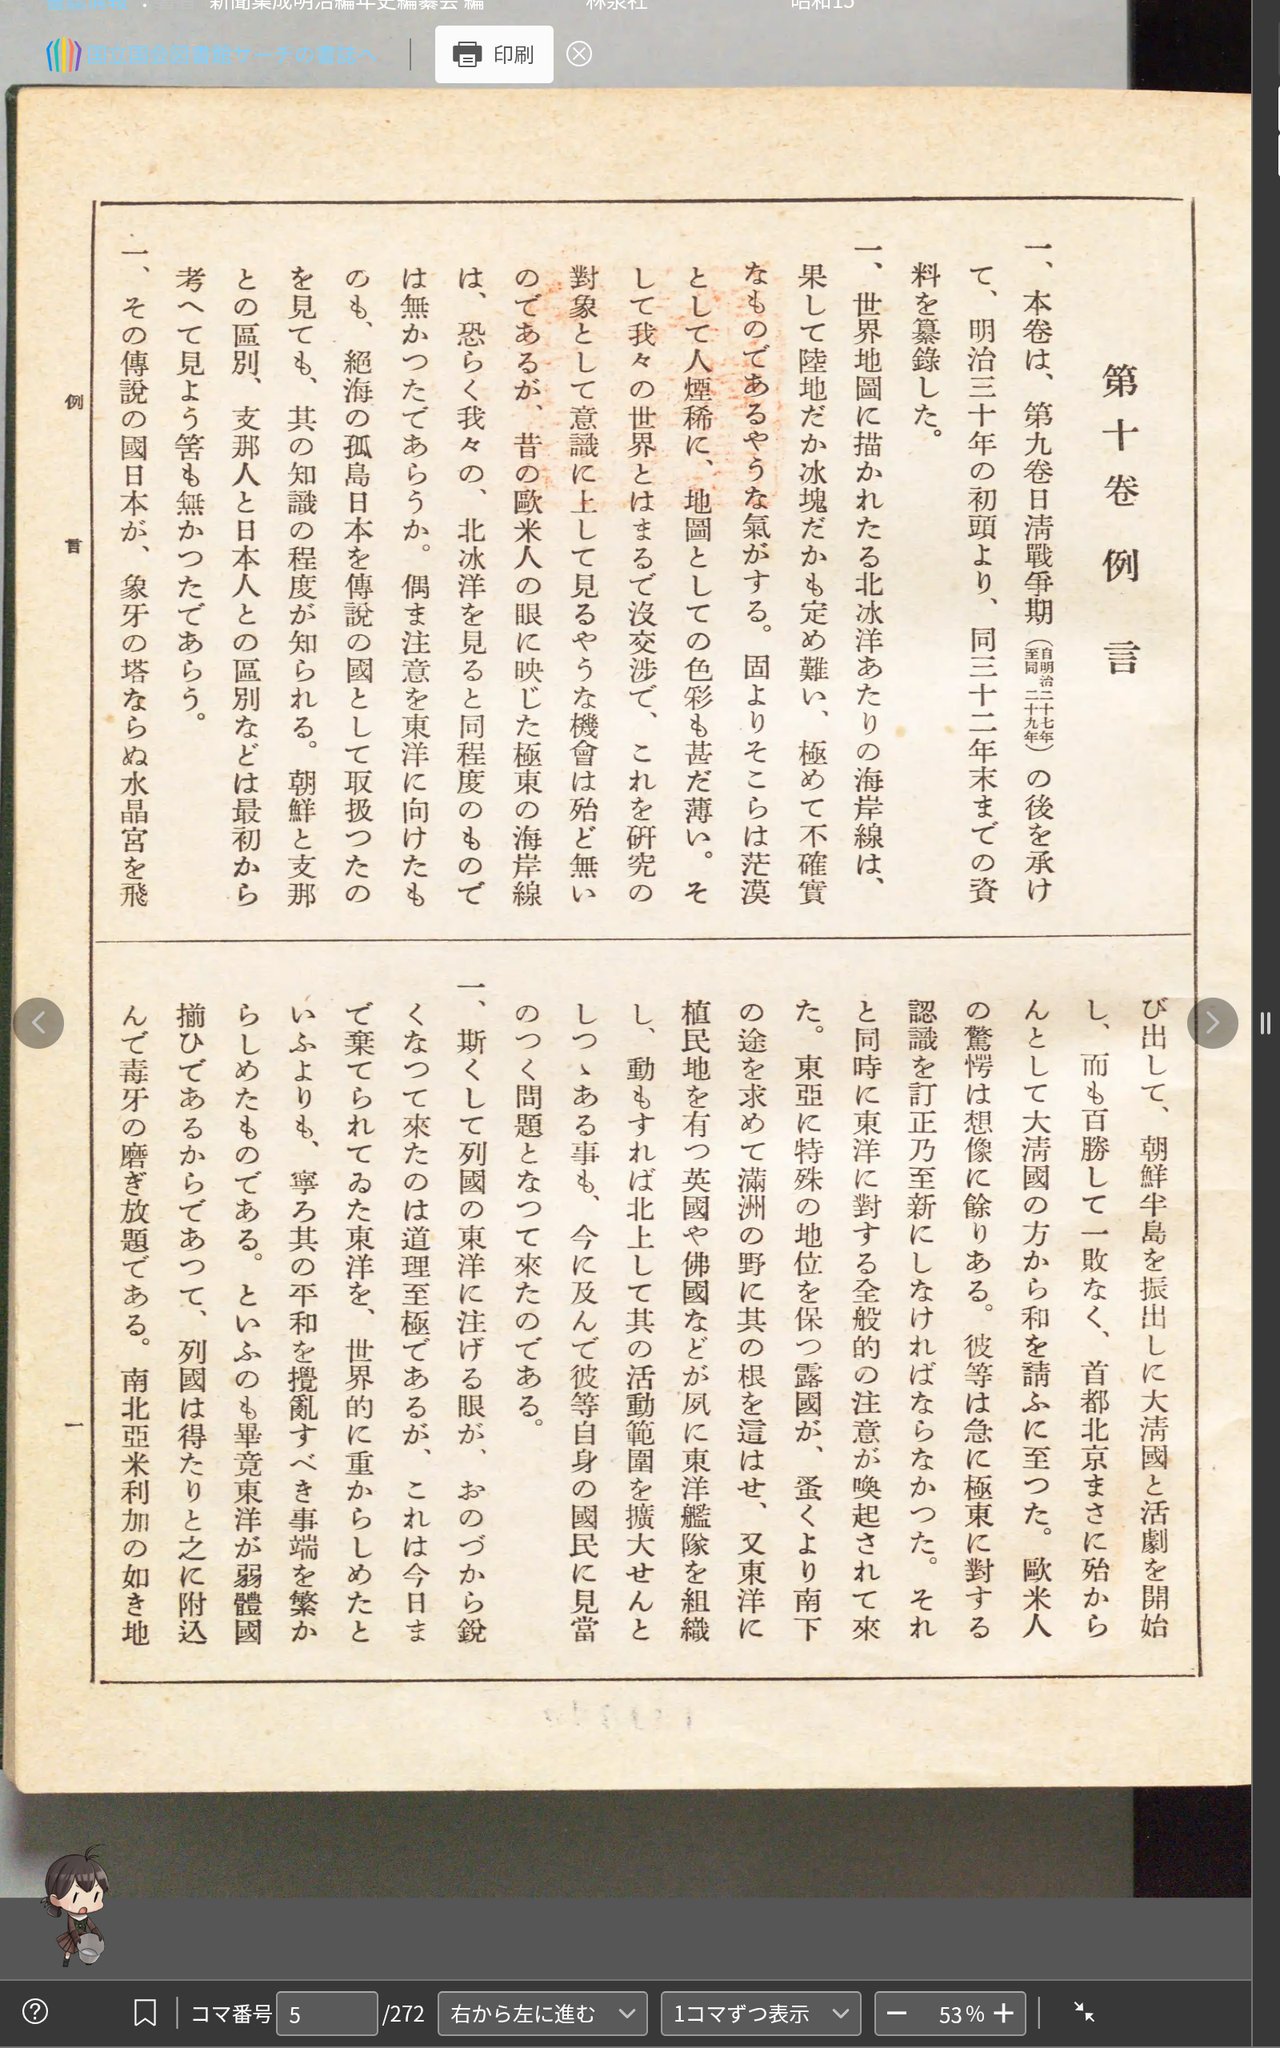 新聞集成明治編年史編纂会 編
林泉社
昭和15
国立国会図書館サーチの書誌へ
印刷
第十卷 例言
一、本卷は、第九卷日淸戰爭期（自明治二十七年至同二十九年）の後を承け
て、明治三十年の初頭より、同三十二年末までの資
料を纂錄した。
一、世界地圖に描かれたる北冰洋あたりの海岸線は、
果して陸地だか冰塊だかも定め難い、極めて不確實
なものであるやうな氣がする。固よりそこらは茫漠
として人煙稀に、地圖としての色彩も甚だ薄い。そ
して我々の世界とはまるで沒交涉で、これを硏究の
對象として意識に上して見るやうな機會は殆ど無い
のであるが、昔の歐米人の眼に映じた極東の海岸線
は、恐らく我々の、北冰洋を見ると同程度のもので
は無かつたであらうか。偶ま注意を東洋に向けたも
のも、絕海の孤島日本を傳說の國として取扱つたの
を見ても、其の知識の程度が知られる。朝鮮と支那
との區別、支那人と日本人との區別などは最初から
考へて見よう筈も無かつたであらう。
一、その傳說の國日本が、象牙の塔ならぬ水晶宮を飛
び出して、朝鮮半島を振出しに大淸國と活劇を開始
し、而も百勝して一敗なく、首都北京まさに殆から
んとして大淸國の方から和を請ふに至つた。歐米人
の驚愕は想像に餘りある。彼等は急に極東に對する
認識を訂正乃至新にしなければならなかつた。それ
と同時に東洋に對する全般的の注意が喚起されて來
た。東亞に特殊の地位を保つ露國が、蚤くより南下
の途を求めて滿洲の野に其の根を這はせ、又東洋に
植民地を有つ英國や佛國などが夙に東洋艦隊を組織
し、動もすれば北上して其の活動範圍を擴大せんと
しつゝある事も、今に及んで彼等自身の國民に見當
のつく問題となつて來たのである。
一、斯くして列國の東洋に注げる眼が、おのづから銳
くなつて來たのは道理至極であるが、これは今日ま
で棄てられてゐた東洋を、世界的に重からしめたと
いふよりも、寧ろ其の平和を攪亂すべき事端を繁か
らしめたものである。といふのも畢竟東洋が弱體國
揃ひであるからであつて、列國は得たりと之に附込
んで毒牙の磨ぎ放題である。南北亞米利加の如き地
例言
一
コマ番号 5 /272 右から左に進む 1コマずつ表示 53%